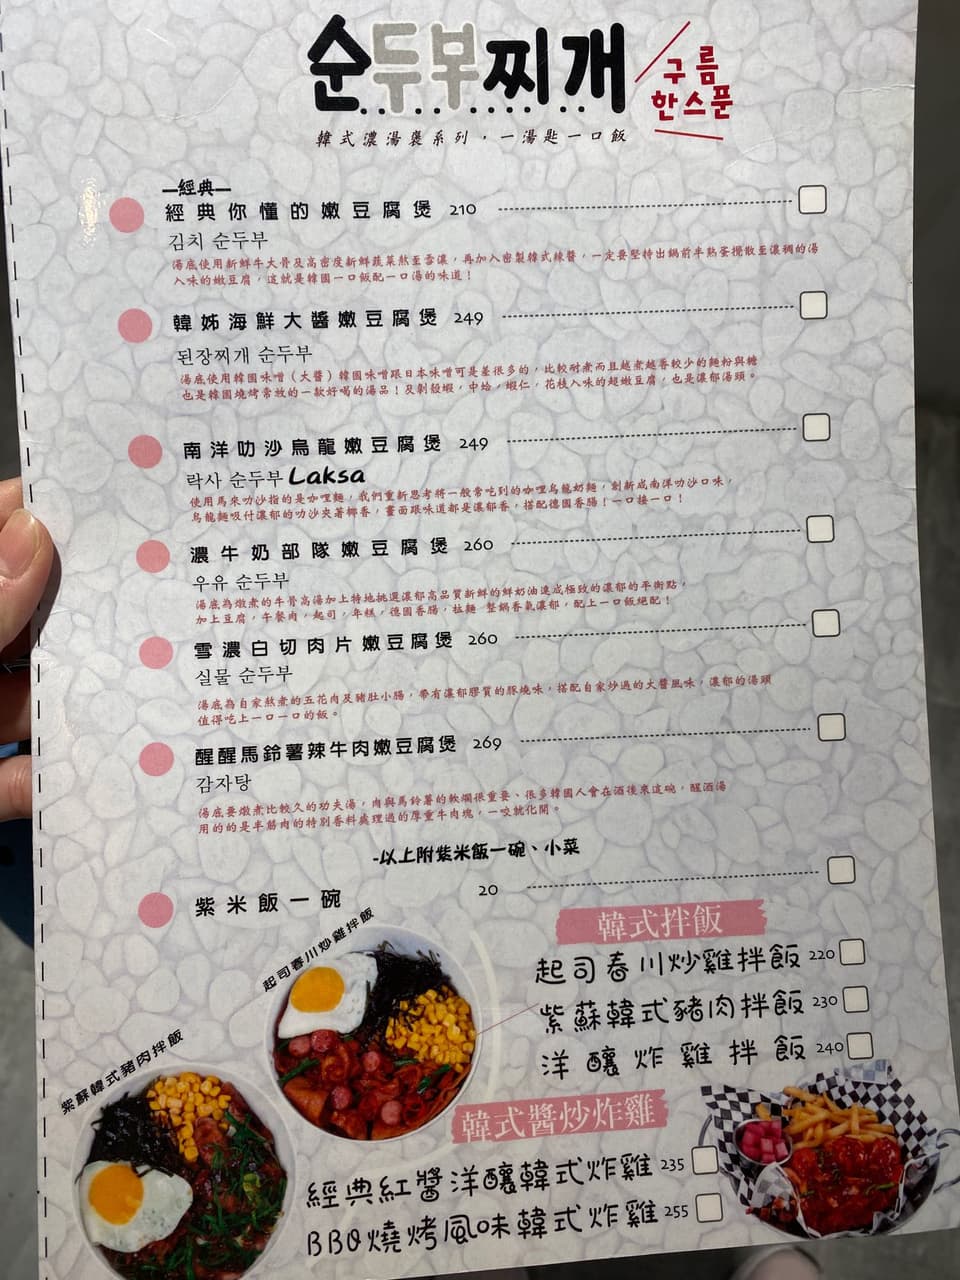 순두부찌개
구름
한스푼
韓式濃湯煲系列，一湯匙一口飯
—經典—
經典你懂的嫩豆腐煲 210
김치 순두부
湯底使用新鮮牛大骨及高密度新鮮蔬菜熬至香濃，再加入密製韓式辣醬，一定要堅持出鍋前半熟蛋攪散至濃稠的湯
入味的嫩豆腐，這就是韓國一口飯配一口湯的味道！
韓姊海鮮大醬嫩豆腐煲 249
된장찌개 순두부
湯底使用韓國味噌（大醬）韓國味噌跟日本味噌可是差很多的，比較耐煮而且越煮越香較少的麵粉與糖
也是韓國燒烤常放的一款好喝的湯品！及剝殼蝦，中蛤，蝦仁，花枝入味的超嫩豆腐，也是濃郁湯頭。
南洋叻沙烏龍嫩豆腐煲 249
락사 순두부 Laksa
使用馬來叻沙指的是咖哩麵，我們重新思考將一般常吃到的咖哩烏龍奶麵，創新成南洋叻沙口味，
烏龍麵吸付濃郁的叻沙夾著椰香，畫面跟味道都是濃郁香，搭配德國香腸！一口接一口！
濃牛奶部隊嫩豆腐煲 260
우유 순두부
湯底為燉煮的牛骨高湯加上特地挑選濃郁高品質新鮮的鮮奶油達成極致的濃郁的平衡點，
加上豆腐，午餐肉，起司，年糕，德國香腸，拉麵 整鍋香氣濃郁，配上一口飯絕配！
雪濃白切肉片嫩豆腐煲 260
실물 순두부
湯底為自家熬煮的五花肉及豬肚小腸，帶有濃郁膠質的豚燒味，搭配自家炒過的大醬風味，濃郁的湯頭
值得吃上一口一口的飯。
醒醒馬鈴薯辣牛肉嫩豆腐煲 269
감자탕
湯底要燉煮比較久的功夫湯，肉與馬鈴薯的軟爛很重要、很多韓國人會在酒後來這碗，醒酒湯
用的的是半筋肉的特別香料處理過的厚重牛肉塊，一咬就化開。
-以上附紫米飯一碗、小菜
紫米飯一碗 20
韓式拌飯
起司春川炒雞拌飯
起司春川炒雞拌飯 220
紫蘇韓式豬肉拌飯 230
洋釀炸雞拌飯 240
紫蘇韓式豬肉拌飯
韓式醬炒炸雞
經典紅醬洋釀韓式炸雞 235
BBQ燒烤風味韓式炸雞 255